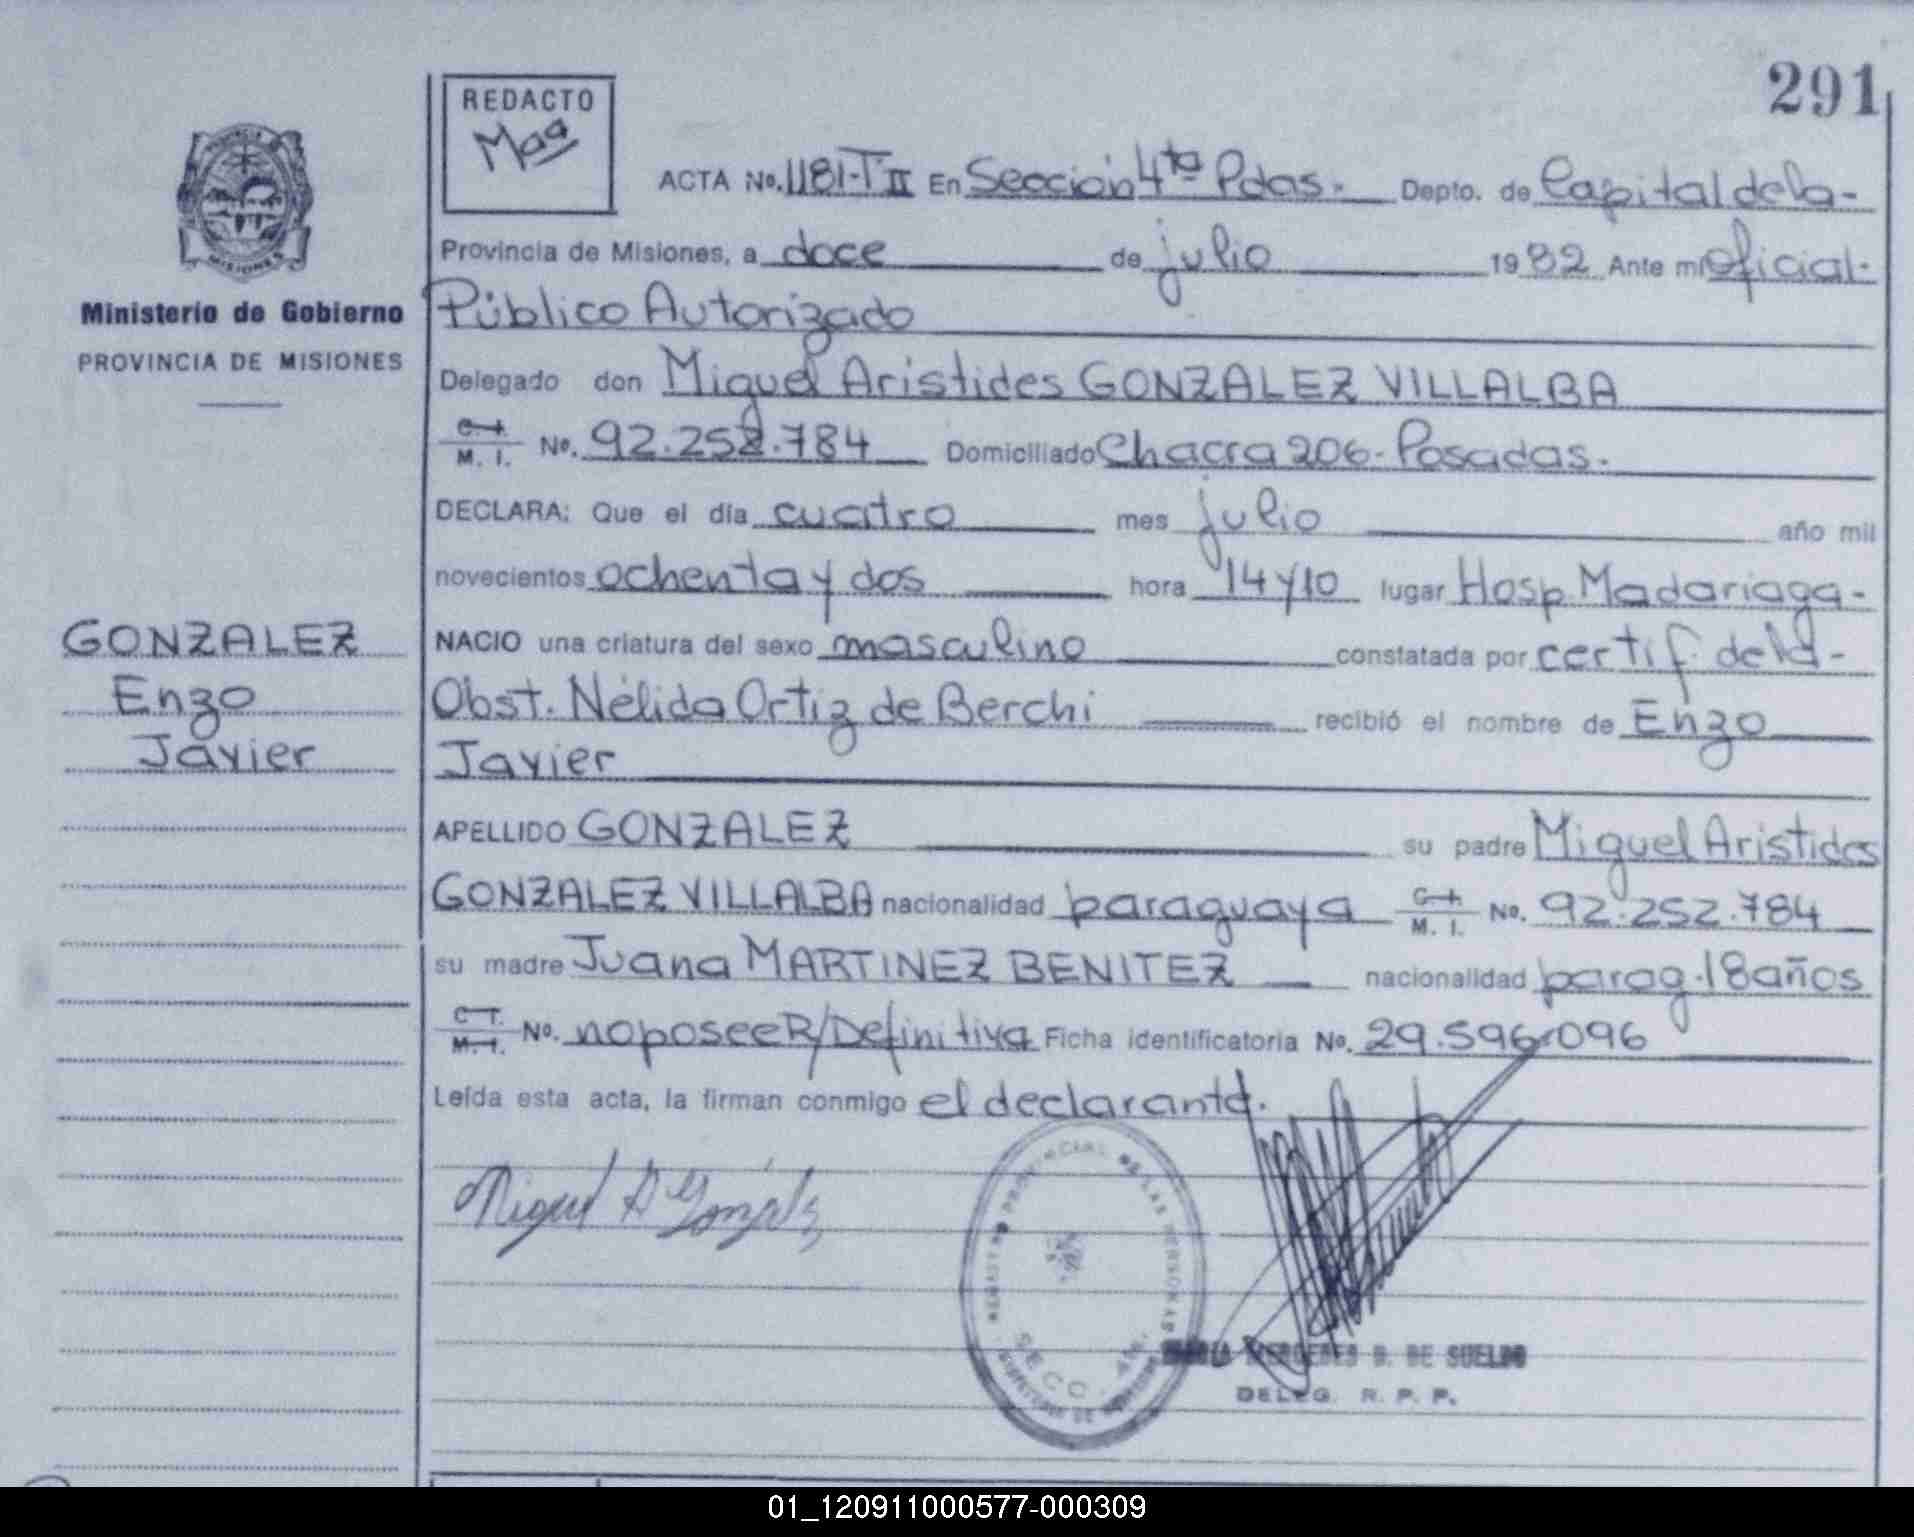 291
REDACTO
Mag
ACTA No. 1181-T II En Sección 4ta Pdas. Depto. de Capital de la-
Provincia de Misiones, a doce de julio 1982 Ante mi Oficial-
Público Autorizado
Delegado don Miguel Aristides GONZALEZ VILLALBA
C. I.
M. I. No. 92.252.784 Domiciliado Chacra 206- Posadas.
DECLARA: Que el día cuatro mes julio año mil
novecientos ochenta y dos hora 14 y 10 lugar Hosp. Madariaga-
NACIO una criatura del sexo masculino constatada por certif. de la-
Obst. Nélida Ortiz de Berchi recibió el nombre de Enzo
Javier
APELLIDO GONZALEZ su padre Miguel Aristides
GONZALEZ VILLALBA nacionalidad paraguaya C. I.
M. I. No. 92.252.784
su madre Juana MARTINEZ BENITEZ nacionalidad parag. 18 años
C. I.
M. I. No. no posee R/Definitiva Ficha identificatoria No. 29.596.096
Leída esta acta, la firman conmigo el declarante.
Miguel A Gonzalez
REGISTRO PROVINCIAL DE LAS PERSONAS
SECC. 4ta.
MERCEDES B. DE SUELDO
DELEG. R. P. P.
PROVINCIA
MISIONES
Ministerio de Gobierno
PROVINCIA DE MISIONES
GONZALEZ
Enzo
Javier
01_120911000577-000309